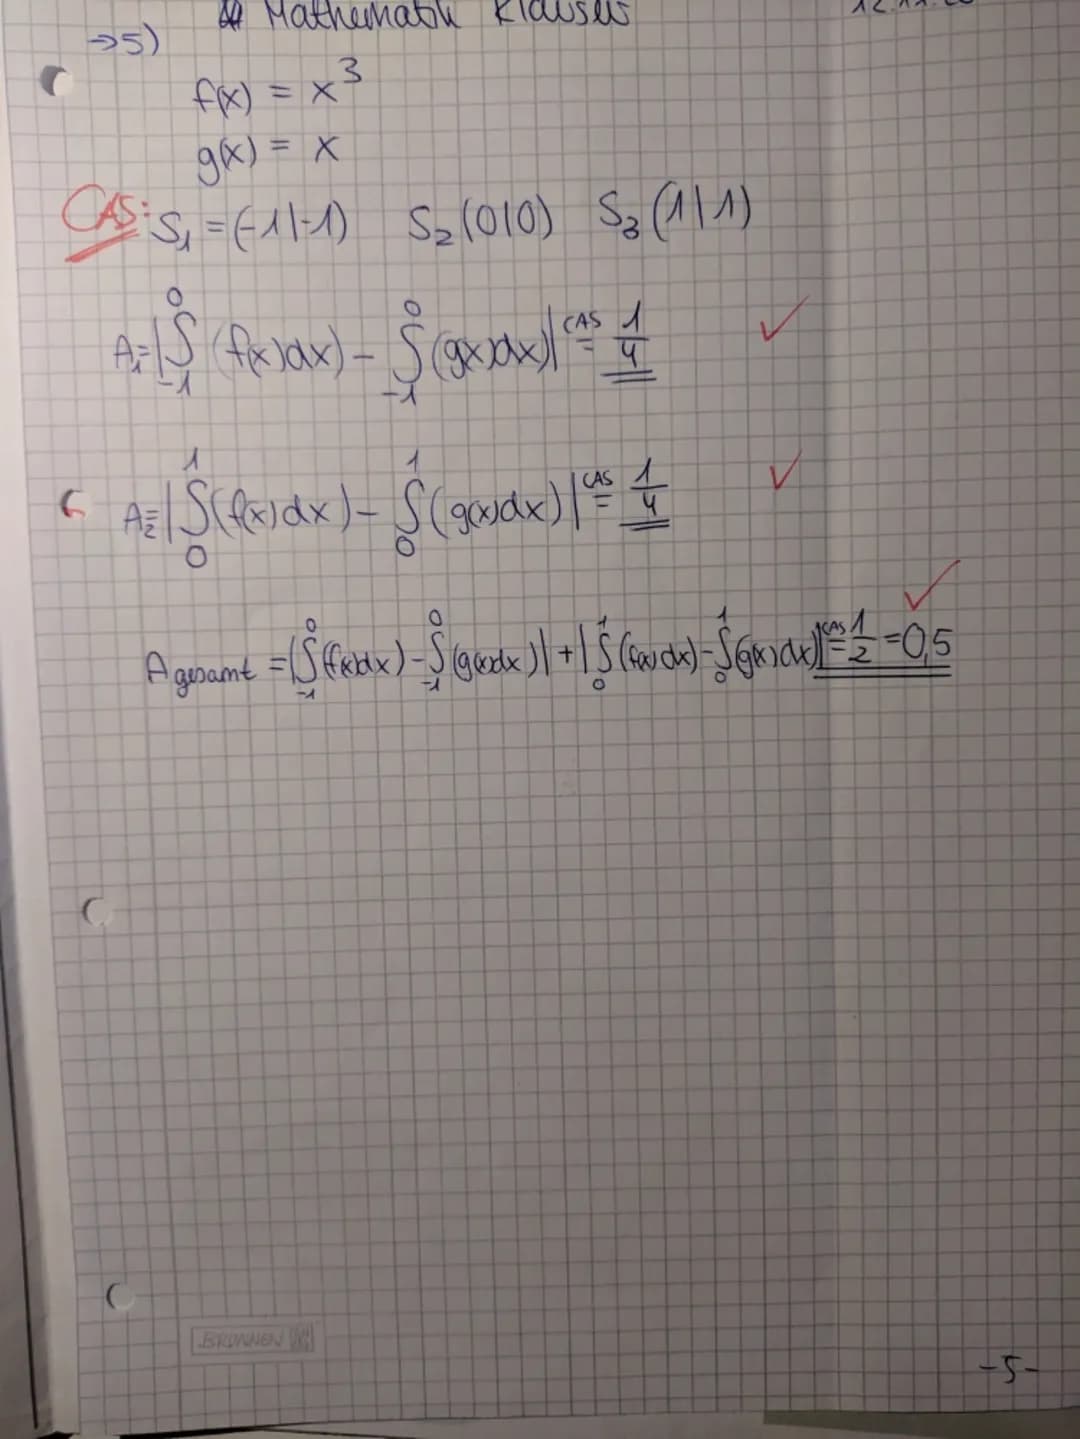 Mathematik Klausur
→5)
f(x) = x³
g(x) = x
CAS: S₁ = (-1|-1) S₂ (0|0) S₃ (1|1)
A₁=|∫₋₁⁰ (f(x)dx) - ∫₋₁⁰ (g(x)dx)| CAS= 1/4 ✓
A₂=|∫₀¹ (f(x)dx) - ∫₀¹ (g(x)dx)| CAS= 1/4 ✓
A gesamt = |∫₋₁⁰ (f(x)dx) - ∫₋₁⁰ (g(x)dx)| + |∫₀¹ (f(x)dx) - ∫₀¹ (g(x)dx)| CAS= 1/2 = 0,5 ✓
BRUNNEN
-5-